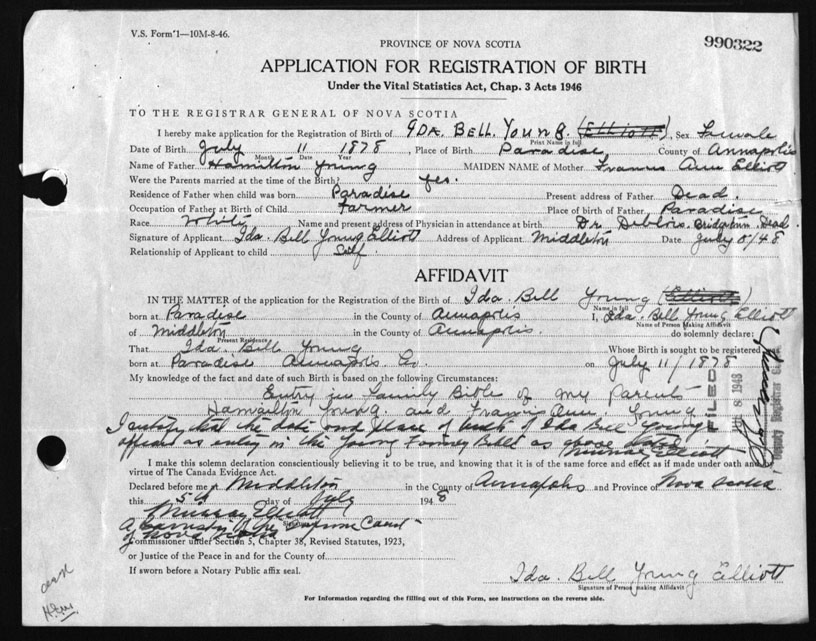 V.S. Form 1—10M-8-46.
990322
PROVINCE OF NOVA SCOTIA
APPLICATION FOR REGISTRATION OF BIRTH
Under the Vital Statistics Act, Chap. 3 Acts 1946
TO THE REGISTRAR GENERAL OF NOVA SCOTIA
I hereby make application for the Registration of Birth of IDA. BELL. YOUNG. (ELLIOTT) Sex Female
Print Name in full
Date of Birth July 11 1878, Place of Birth Paradise County of Annapolis
Month Date Year
Name of Father Hamilton Young MAIDEN NAME of Mother Francis Ann Elliott
Were the Parents married at the time of the Birth? yes.
Residence of Father when child was born Paradise Present address of Father Dead.
Occupation of Father at Birth of Child Farmer Place of birth of Father Paradise
Race White Name and present address of Physician in attendance at birth Dr. Deblois. Bridgetown. Dead.
Signature of Applicant Ida. Bell Young Elliott Address of Applicant Middleton Date July 5/48
Relationship of Applicant to child Self
AFFIDAVIT
IN THE MATTER of the application for the Registration of the Birth of Ida. Bell Young (Elliott)
Name in full
born at Paradise in the County of Annapolis I, Ida. Bell Young Elliott
Name of Person Making Affidavit
of Middleton in the County of Annapolis. do solemnly declare:
Present Residence
That Ida. Bell Young Whose Birth is sought to be registered
born at Paradise Annapolis Co. on July 11/1878
My knowledge of the fact and date of such Birth is based on the following Circumstances:
Entry in Family Bible of my Parents
Hamilton Young. and Francis Ann. Young
I certify that the date and place of birth of Ida Bell Young
appears as entry in the Young Family Bible as above noted
Murray Elliott
FILED
8 1948
Deputy Registrar
I make this solemn declaration conscientiously believing it to be true, and knowing that it is of the same force and effect as if made under oath and by
virtue of The Canada Evidence Act.
Declared before me at Middleton in the County of Annapolis and Province of Nova Scotia
this 5th day of July 1948
Murray Elliott
A Barrister of the Supreme Court
of Nova Scotia
Commissioner under Section 5, Chapter 38, Revised Statutes, 1923,
or Justice of the Peace in and for the County of
If sworn before a Notary Public affix seal.
Ida. Bell Young Elliott
Signature of Person making Affidavit
For Information regarding the filling out of this Form, see instructions on the reverse side.